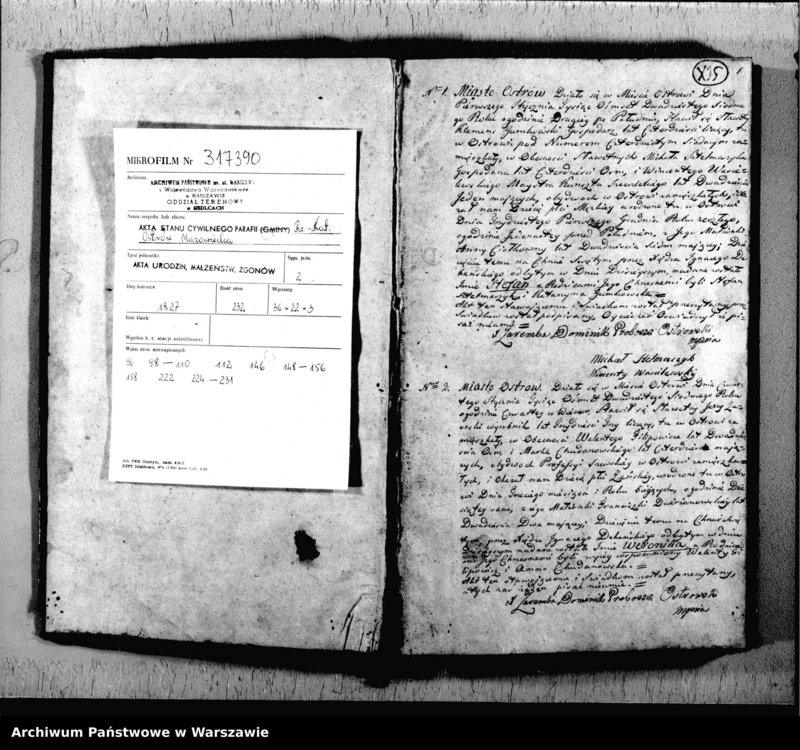 MIKROFILM Nr 317390
Archiwum
ARCHIWUM PAŃSTWOWE m. st. WARSZAWY
i Województwa Warszawskiego
w WARSZAWIE
ODDZIAŁ TERENOWY
w SIEDLCACH
Nazwa zespołu lub zbioru
AKTA STANU CYWILNEGO PARAFII (GMINY) Rz.-Kat.
Ostrów Mazowiecka
Tytuł jednostki:
AKTA URODZIN, MAŁŻEŃSTW, ZGONÓW
Sygn. jedn.
2
Daty krańcowe
1827
Ilość stron
232
Wymiary:
36 × 22 × 3
Ilość klatek:
Wykaz stron niezapisanych
96 98 — 110 112 146 148 — 156
158 222 224 — 231
X15
1
Nro 1. Miasto Ostrów Działo się w Mieście Ostrowi Dnia
Pierwszego Stycznia Tysiąc Ośmset Dwudziestego Siodme
go Roku o godzinie Drugiej po Południu, Stawił się Sławetny
Klemens Gumkowski Gospodarz lat Czterdzieści liczący, tu
w Ostrowi pod Numerem Czterdziestym Siódmym za
mieszkały, w Obecności Sławetnych Michała Stelmaszyka
Gospodarza lat Czterdzieści Ośm, i Wincentego Wasi
lewskiego Majstra Kunsztu Szewskiego lat Dwadzieścia
Jeden mających, obydwóch w Ostrowi zamieszkałych,
zał nam Dziecię płci Męskiej urodzone tu w Ostrowi
Dnia Trzydziestego Pierwszego Grudnia Roku zeszłego,
o godzinie Jedenastej przed Południem, z Jego Małżonki
Anny lat Dwadzieścia Siedm mającej; Dzie
cięciu temu na Chrzcie Świętym przez Xiędza Ignacego De
kańskiego odbytym w Dniu Dzisiejszym, nadane zostało
Imie Stefan a Rodzicami Jego Chrzestnemi byli Stefan
Stelmaszyk i Katarzyna Gumkowska. =
Akt ten Stawającemu i Świadkom został przeczytany, przez
Świadków został podpisany, Ojciec zaś Oświadczył że pi
sać nieumie =
X. Zaremba Dominik Proboszcz Ostrowski
mpria
Michał Stelmaszyk
Wincenty Wasilewski
Nro 2. Miasto Ostrów. Działo się w Mieście Ostrowi Dnia Czwar
tego Stycznia Tysiąc Ośmset Dwudziestego Siodmego Roku
o godzinie Czwartej w Wieczór Stawił się Sławetny
wyrobnik lat Trzydzieści Trzy liczący tu w Ostrowi za
mieszkały w Obecności Walentego Filipowicza lat Dwadzie
ścia Ośm, i Marka Chudanowskiego lat Czterdzieści mają
cych, obydwóch Professyi Szewskiej w Ostrowi zamieszka
łych, i okazał nam Dziecię płci Żeńskiej, urodzone tu w Ostro
wi Dnia Trzeciego miesiąca i Roku bieżących, o godzinie Dzie
siątej rano, z jego Małżonki Franciszki lat
Dwadzieścia Dwa mającej; Dziecięciu temu na Chrzcie Świę
tym, przez Xiędza Ignacego Dekańskiego odbytym w dniu
Dzisiejszym nadane zostało Imie Weronika, a Rodzica
mi Jej Chrzestnemi byli wyżej wspomniony Walenty Fi
lipowicz i Anna Chudanowska. =
Akt ten Stawającemu i Świadkom został przeczytany,
X. Zaremba Dominik Proboszcz Ostrowski
mpria
Archiwum Państwowe w Warszawie